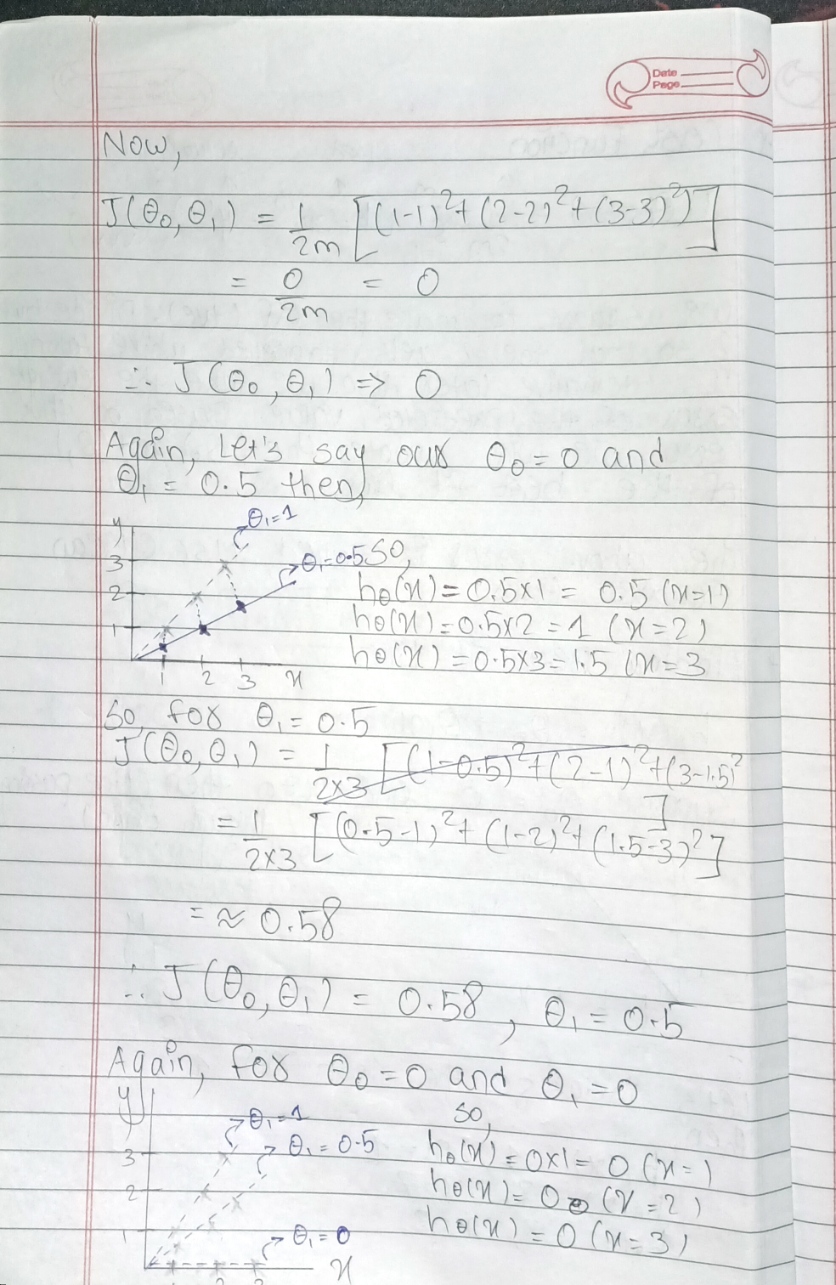 Date
Page
Now,
J(θ₀,θ₁) = 1/2m [(1-1)²+(2-2)²+(3-3)²)]
= 0/2m = 0
∴ J(θ₀,θ₁) => 0
Again, Let's say our θ₀=0 and
θ₁= 0.5 then,
y
θ₁=1
3
θ₁=0.5
So,
2
hθ(x)=0.5x1= 0.5 (x=1)
hθ(x)=0.5x2=1 (x=2)
1
hθ(x)=0.5x3=1.5 (x=3
1 2 3 x
So for θ₁= 0.5
J(θ₀,θ₁) = 1/2x3 [(1-0.5)²+(2-1)²+(3-1.5)²
]
= 1/2x3 [(0.5-1)²+(1-2)²+(1.5-3)²]
=≈ 0.58
∴ J(θ₀,θ₁) = 0.58, θ₁=0.5
Again, for θ₀=0 and θ₁=0
y
θ₁=1
So,
3
θ₁=0.5
hθ(x)=0x1=0 (x=1
2
hθ(x)=0 (x=2)
1
θ₁=0
hθ(x)=0 (x=3)
x